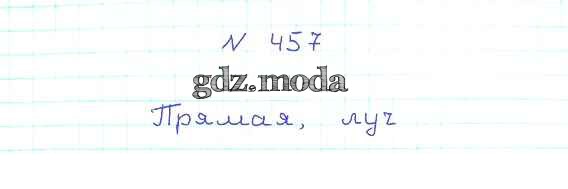 N 457
gdz.moda
Прямая, луч